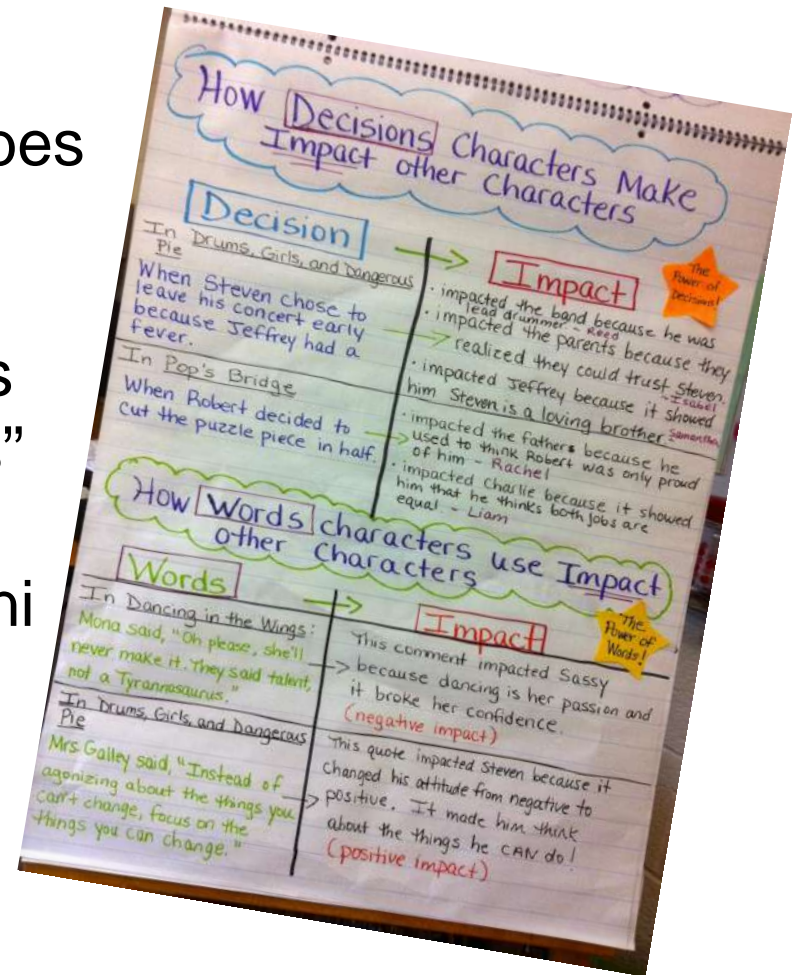 oes
s
”
ni
How Decisions Characters Make
Impact other Characters
Decision
Impact
The
Power of
Decisions!
In Drums, Girls, and Dangerous
Pie
When Steven chose to
leave his concert early
because Jeffrey had a
fever.
· impacted the band because he was
lead drummer - Reed
· impacted the parents because they
realized they could trust Steven.
- Isabel
· impacted Jeffrey because it showed
him Steven is a loving brother.
Samantha
In Pop's Bridge
When Robert decided to
cut the puzzle piece in half.
· impacted the fathers because he
used to think Robert was only proud
of him - Rachel
· impacted Charlie because it showed
him that he thinks both jobs are
equal - Liam
How Words characters use Impact
other Characters
Words
Impact
The
Power of
Words!
In Dancing in the Wings:
Mona said, "Oh please, she'll
never make it. They said talent,
not a Tyrannasaurus."
This comment impacted Sassy
because dancing is her passion and
it broke her confidence.
(negative impact)
In Drums, Girls, and Dangerous
Pie
Mrs. Galley said, "Instead of
agonizing about the things you
can't change, focus on the
things you can change."
This quote impacted Steven because it
changed his attitude from negative to
positive. It made him think
about the things he CAN do!
(positive impact)